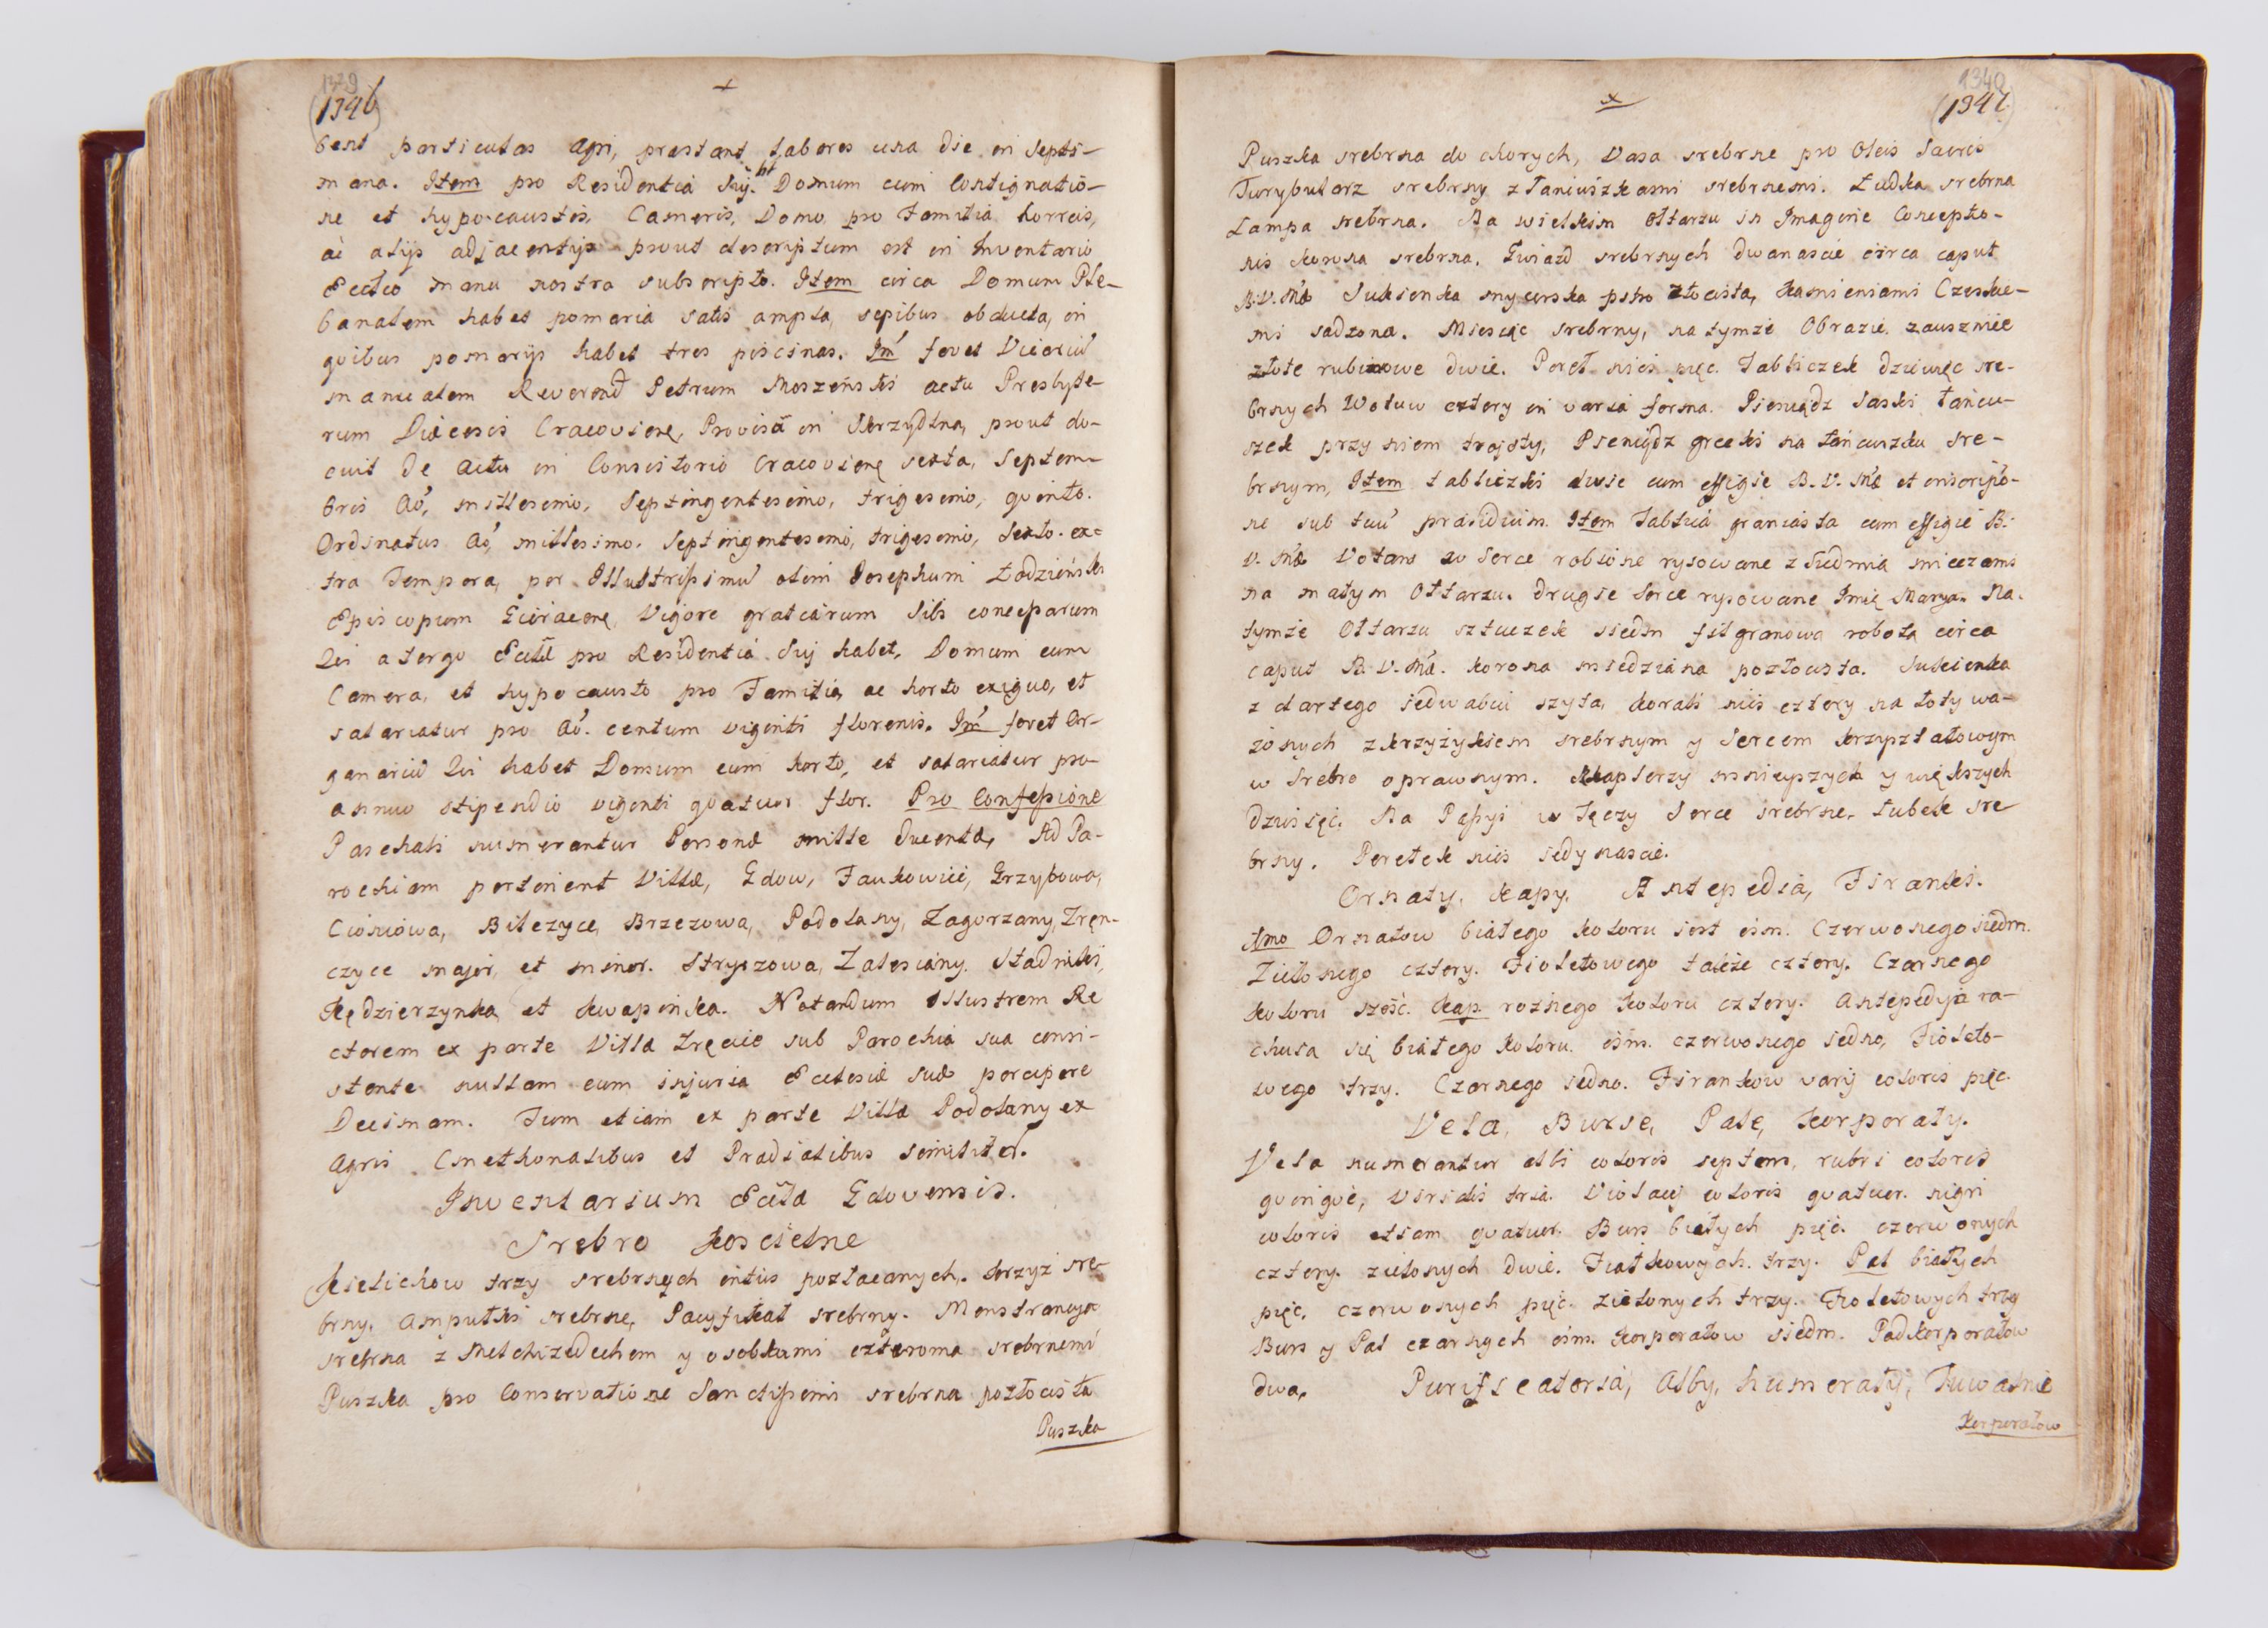 179
(1346)
+
bent particulas agri, præstant labores una die in septi-
mana. Item pro Residentia suij ht Domum cum Contignatio-
ne et hypocaustis, Cameris, Domo pro Familia horreis,
ac alijs adjacentijs prout descriptum est in Inventario
Eccłco manu nostra subscripto. Item circa Domum Ple-
banalem habet pomaria satis ampla, sepibus obducta, in
qvibus pomarijs habet tres piscinas. Im fovet Vicariu
manualem Reverend Petrum Moszeński actu Presbyte-
rum Diæcesis Cracovienę, Provisa in Skrzydlna, prout do-
cuit de actu in Consistorio Cracovienę sexta, Septem-
bris Ao, millesimo, Septingentesimo, trigesimo, qvinto.
Ordinatus Ao, millesimo. Septingentesimo, trigesimo, sexto. ex-
tra Tempora, per Illustrissimu olim Josephum Łodziński
Episcopum
 Vigore gratiarum sibi
Qui a tergo Ecclæ pro Residentia Suij habet, Domum cum
Camera, et hypocausto pro Familia, ac horto exiguo, et
salariatur pro Ao. centum viginti florenis. Im fovet Or-
ganariu Qui habet Domum cum horto, et salariatur pro
annuo stipendio viginti qvatuor flor. Pro Confessione
Paschali numerantur Personæ mille ducentæ, Ad Pa-
rochiam pertinent Villæ, Gdow, Fałkowici, Grzybowa,
Cichowa, Bilczyce, Brzezowa, Podolany, Zagorzany, Zręn-
czyce major, et minor. Stryszowa, Zalesiany. Stadniki,
Kędzierzynka, et Kwapinka. Notandum Illustrem Re
ctorem ex parte Villæ Zręcice sub Parochia sua consi-
stente nullam cum injuria Ecclesiæ suæ percipere
Decimam. Tum etiam ex parte Villæ Podolany ex
agris Cmethonalibus et Prædialibus similiter.
Inventarium Ecclæ Gdovensis.
Srebro Koscielne
Kielichow trzy srebrnych intus pozłacanych. Krzyż sre-
brny. Ampułki srebrne, Pacyfikał srebrny. Monstrancya
srebrna z Melchizedechem y osobkami czteroma srebrnemi
Puszka pro Conservatione Sanctissimi srebrna pozłocista
Puszka
1340
(1347)
x
Puszka srebrna do chorych, Vasa srebrne pro Oleis Sacris
Turybularz srebrny z łaniuszkami srebrnemi. Łudka srebrna
Lampa srebrna. Na wielkim Ołtarzu in Imagine Conceptio-
nis korona srebrna. Gwiazd srebrnych dwanascie circa caput
B.V. Mæ Sukienka snycerska pstro złocista, kamieniami Czeskie-
mi sadzona. Miesiąc srebrny, na tymże Obrazie zausznice
złote rubinowe dwie. Pereł nici pięc. Tabliczek dziewięc sre-
brnych Wotuw cztery in varia forma. Pieniądz Saski łańcu-
szek przy niem trojsty, Pieniądz grecki na łańcuszku sre-
brnym, Item tabliczki dwie cum effigie B.V. Mæ et inscriptio-
ne sub tuu præsidium. Item Tablica graniasta cum effigie B.
V. Mæ Votans w serce robione rysowane z siedmią mieczami
na małym Ołtarzu. drugie serce rysowane Imię Marya. Na
tymże Ołtarzu sztuczek siedm filgranowa robota circa
caput B.V. Mæ. korona miedziana pozłocista. Sukienka
z dartego jedwabiu szyta, korali nici cztery na łoty wa-
żonych z krzyżykiem srebrnym y sercem krzyształowym
w srebro oprawnym. Szkaplerzy mnieyszych y większych
dziesięć. Na Passyi w Tęczy serce srebrne. Łubek sre
brny. Perełek nici jedynascie.
Ornaty, Kapy, Antepedia, Firanki.
Imo Ornatow białego koloru jest ośm. Czerwonego siedm.
Zielonego cztery. Fioletowego takze cztery. Czarnego
koloru szość. Kap rożnego koloru cztery. Antepedyia ra-
chuia się białego koloru ośm. czerwonego jedno, Fioleto-
wego trzy. Czarnego jedno. Firankow varij coloris pięc.
Vela, Burse, Palę, Korporały.
Vela numerantur albi coloris septem, rubri coloris
qvinqve, viridis tria. Violacij coloris qvatuor. nigri
coloris etiam qvatuor. Burs białych pięc. czerwonych
cztery. zielonych dwie. Fiałkowych trzy. Pal białych
pięc, czerwonych pięc. zielonych trzy. Fioletowych trzy
Burs y Pal czarnych ośm. Korporałow siedm. Podkorporałow
dwa. Purificatoria, Alby, Humerały, Tuwalnie
Korporałow